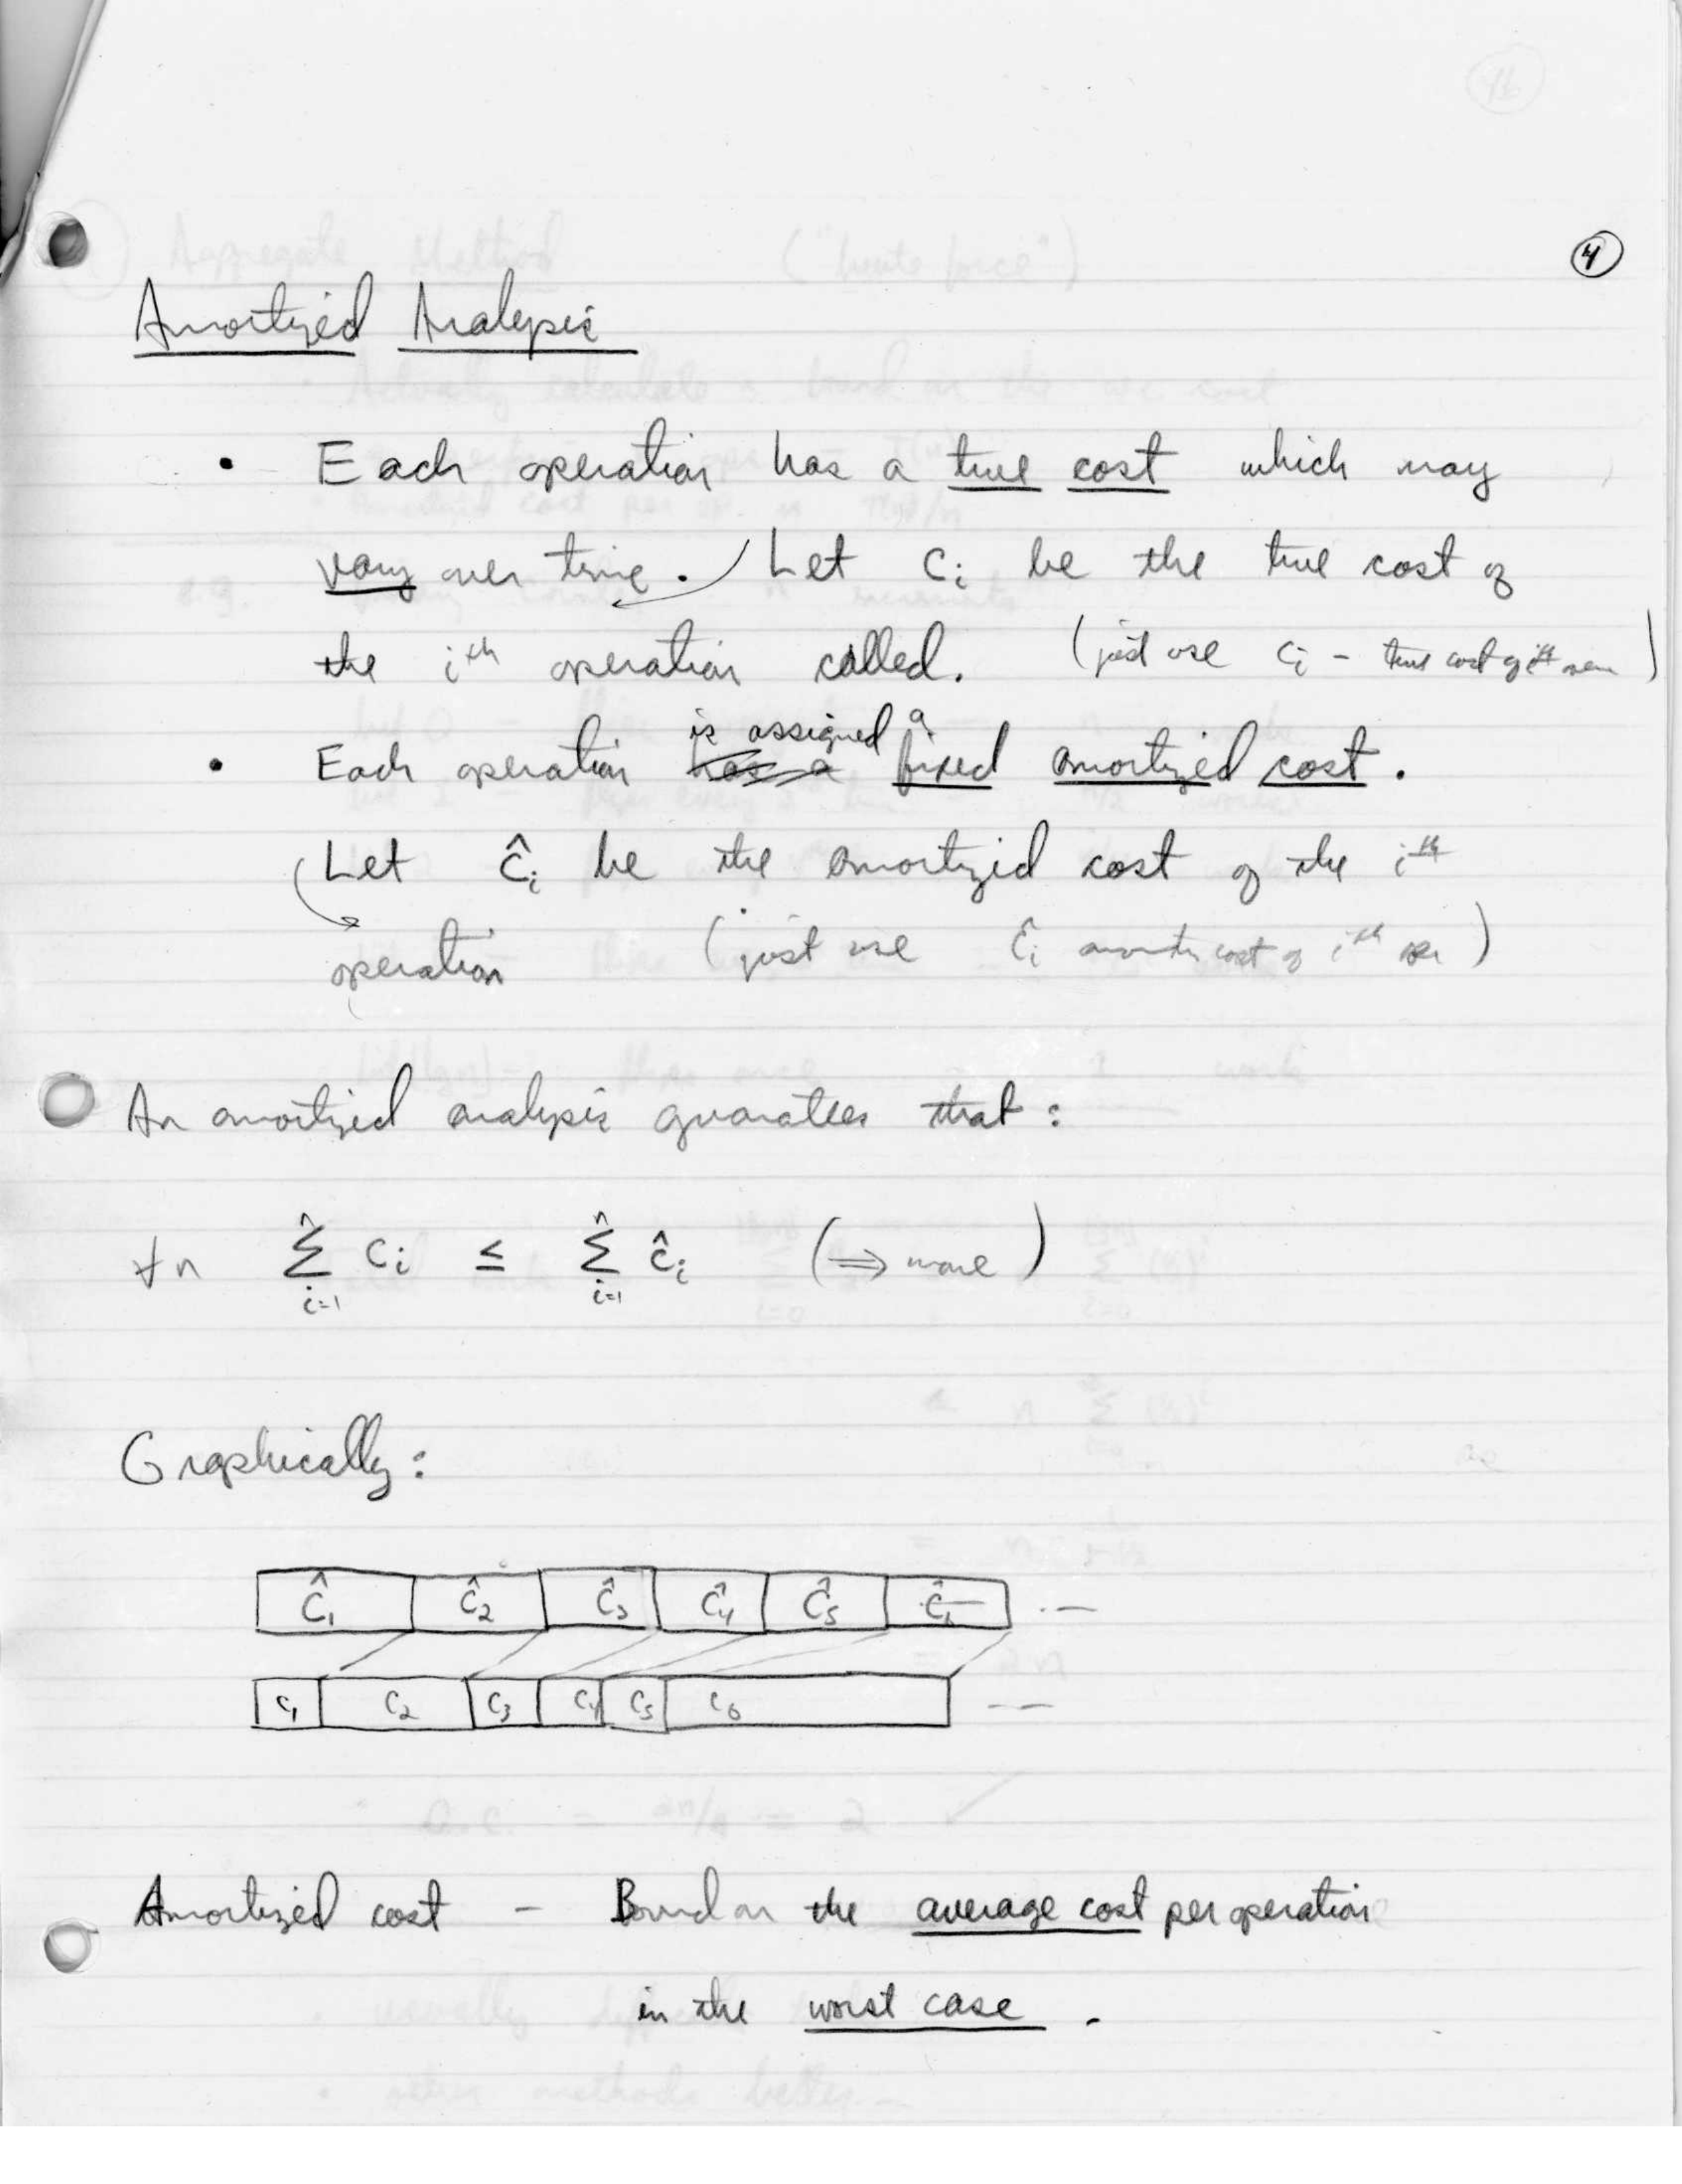 4
Amortized Analysis
• Each operation has a true cost which may
vary over time. Let cᵢ be the true cost of
the iᵗʰ operation called. (just use cᵢ - true cost of iᵗʰ oper)
is assigned a
• Each operation has a fixed amortized cost.
Let ĉᵢ be the amortized cost of the iᵗʰ
operation (just use ĉᵢ cost of iᵗʰ)
An amortized analysis guaratees that:
∀n n∑i=1 cᵢ ≤ n∑i=1 ĉᵢ (⇒ more)
Graphically:
ĉ₁ ĉ₂ ĉ₃ ĉ₄ ĉ₅ ĉ₆ ...
c₁ c₂ c₃ c₄ c₅ c₆ ...
Amortized cost - Bound on the average cost per operation
in the worst case.